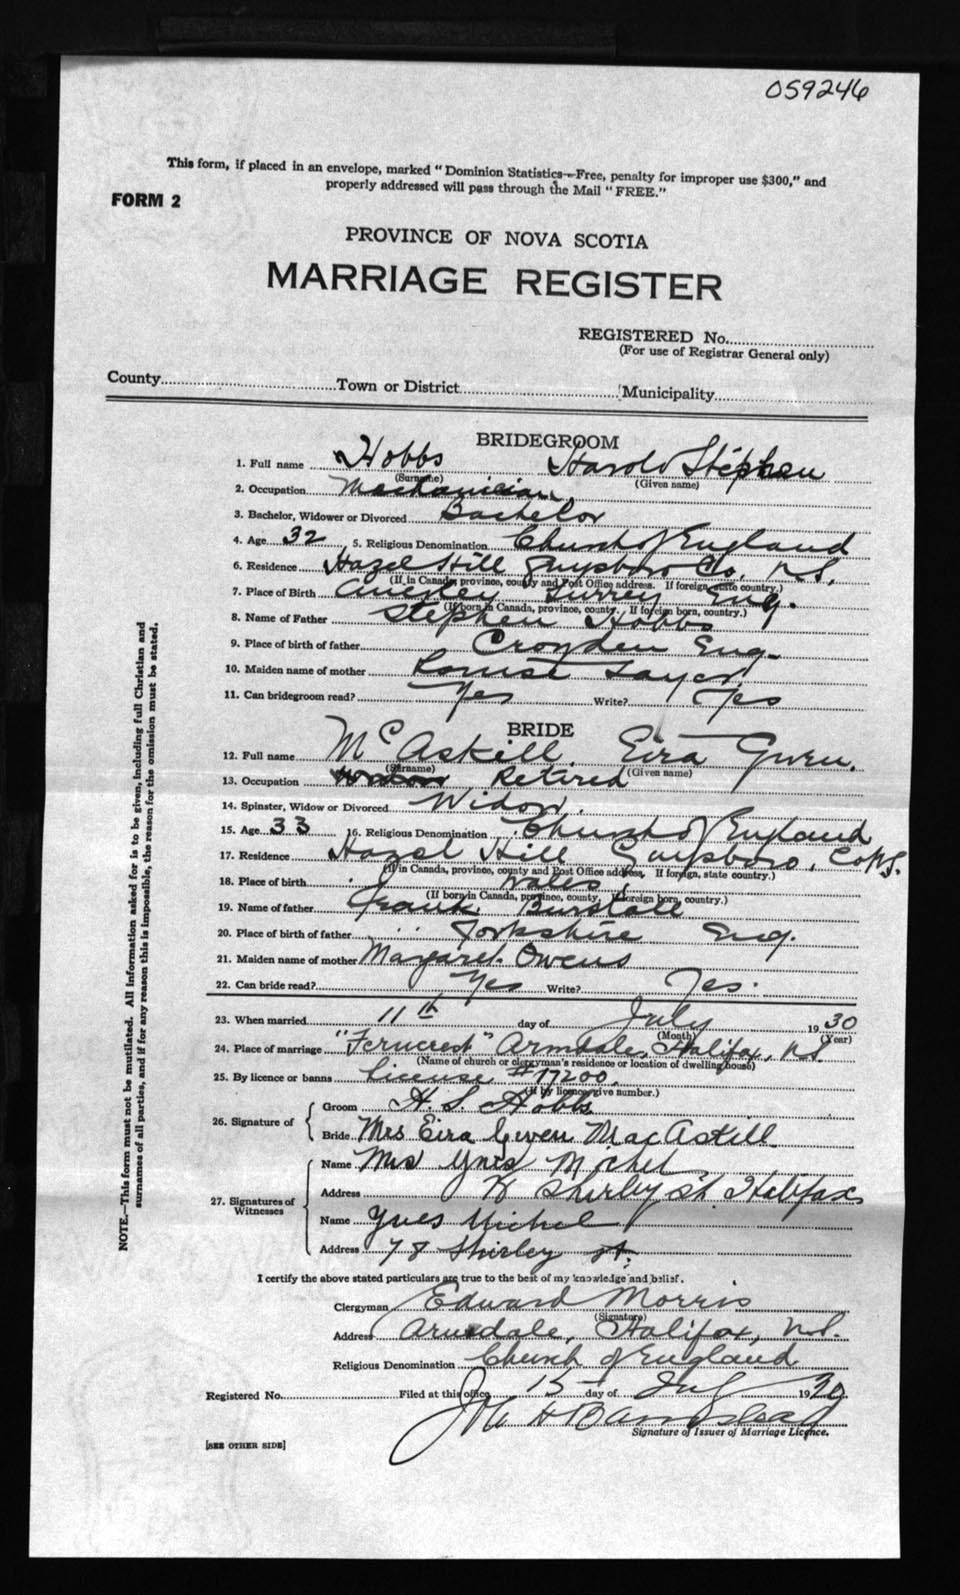 059246
This form, if placed in an envelope, marked "Dominion Statistics—Free, penalty for improper use $300," and
properly addressed will pass through the Mail "FREE."
FORM 2
PROVINCE OF NOVA SCOTIA
MARRIAGE REGISTER
REGISTERED No.
(For use of Registrar General only)
County Town or District Municipality
BRIDEGROOM
1. Full name Hobbs Harold Stephen
(Surname) (Given name)
2. Occupation Mechanician
3. Bachelor, Widower or Divorced Bachelor
4. Age 32 5. Religious Denomination Church of England
6. Residence Hazel Hill Guysboro Co. N.S.
(If in Canada, province, county and Post Office address. If foreign, state country.)
7. Place of Birth Surrey Eng.
(If born in Canada, province, county. If foreign born, country.)
8. Name of Father Stephen Hobbs
9. Place of birth of father Croyden Eng.
10. Maiden name of mother Louise
11. Can bridegroom read? Yes Write? Yes
BRIDE
12. Full name McAskill, Eira Gwen.
(Surname) (Given name)
13. Occupation Retired
14. Spinster, Widow or Divorced Widow.
15. Age 33 16. Religious Denomination Church of England
17. Residence Hazel Hill Guysboro, Co N.S.
(If in Canada, province, county and Post Office address. If foreign, state country.)
18. Place of birth Wales
(If born in Canada, province, county. If foreign born, country.)
19. Name of father Frank Burstall
20. Place of birth of father Yorkshire Eng.
21. Maiden name of mother Margaret Owens
22. Can bride read? Yes Write? Yes.
23. When married 11th day of July 1930
(Month) (Year)
24. Place of marriage "Ferncrest" Armdale, Halifax, N.S.
(Name of church or clergyman's residence or location of dwelling house)
25. By licence or banns License #17200.
(If by licence, give number.)
26. Signature of
Groom H. S. Hobbs
Bride Mrs Eira Gwen MacAskill
27. Signatures of Witnesses
Name Mrs Yves Michel
Address 78 Shirley St Halifax
Name Yves Michel
Address 78 Shirley St.
I certify the above stated particulars are true to the best of my knowledge and belief.
Clergyman Edward Morris
(Signature)
Address Armdale, Halifax, N.S.
Religious Denomination Church of England
Registered No. Filed at this office 15 day of July 1930
Signature of Issuer of Marriage Licence.
[SEE OTHER SIDE]
NOTE.—This form must not be mutilated. All information asked for is to be given, including full Christian and
surnames of all parties, and if for any reason this is impossible, the reason for the omission must be stated.